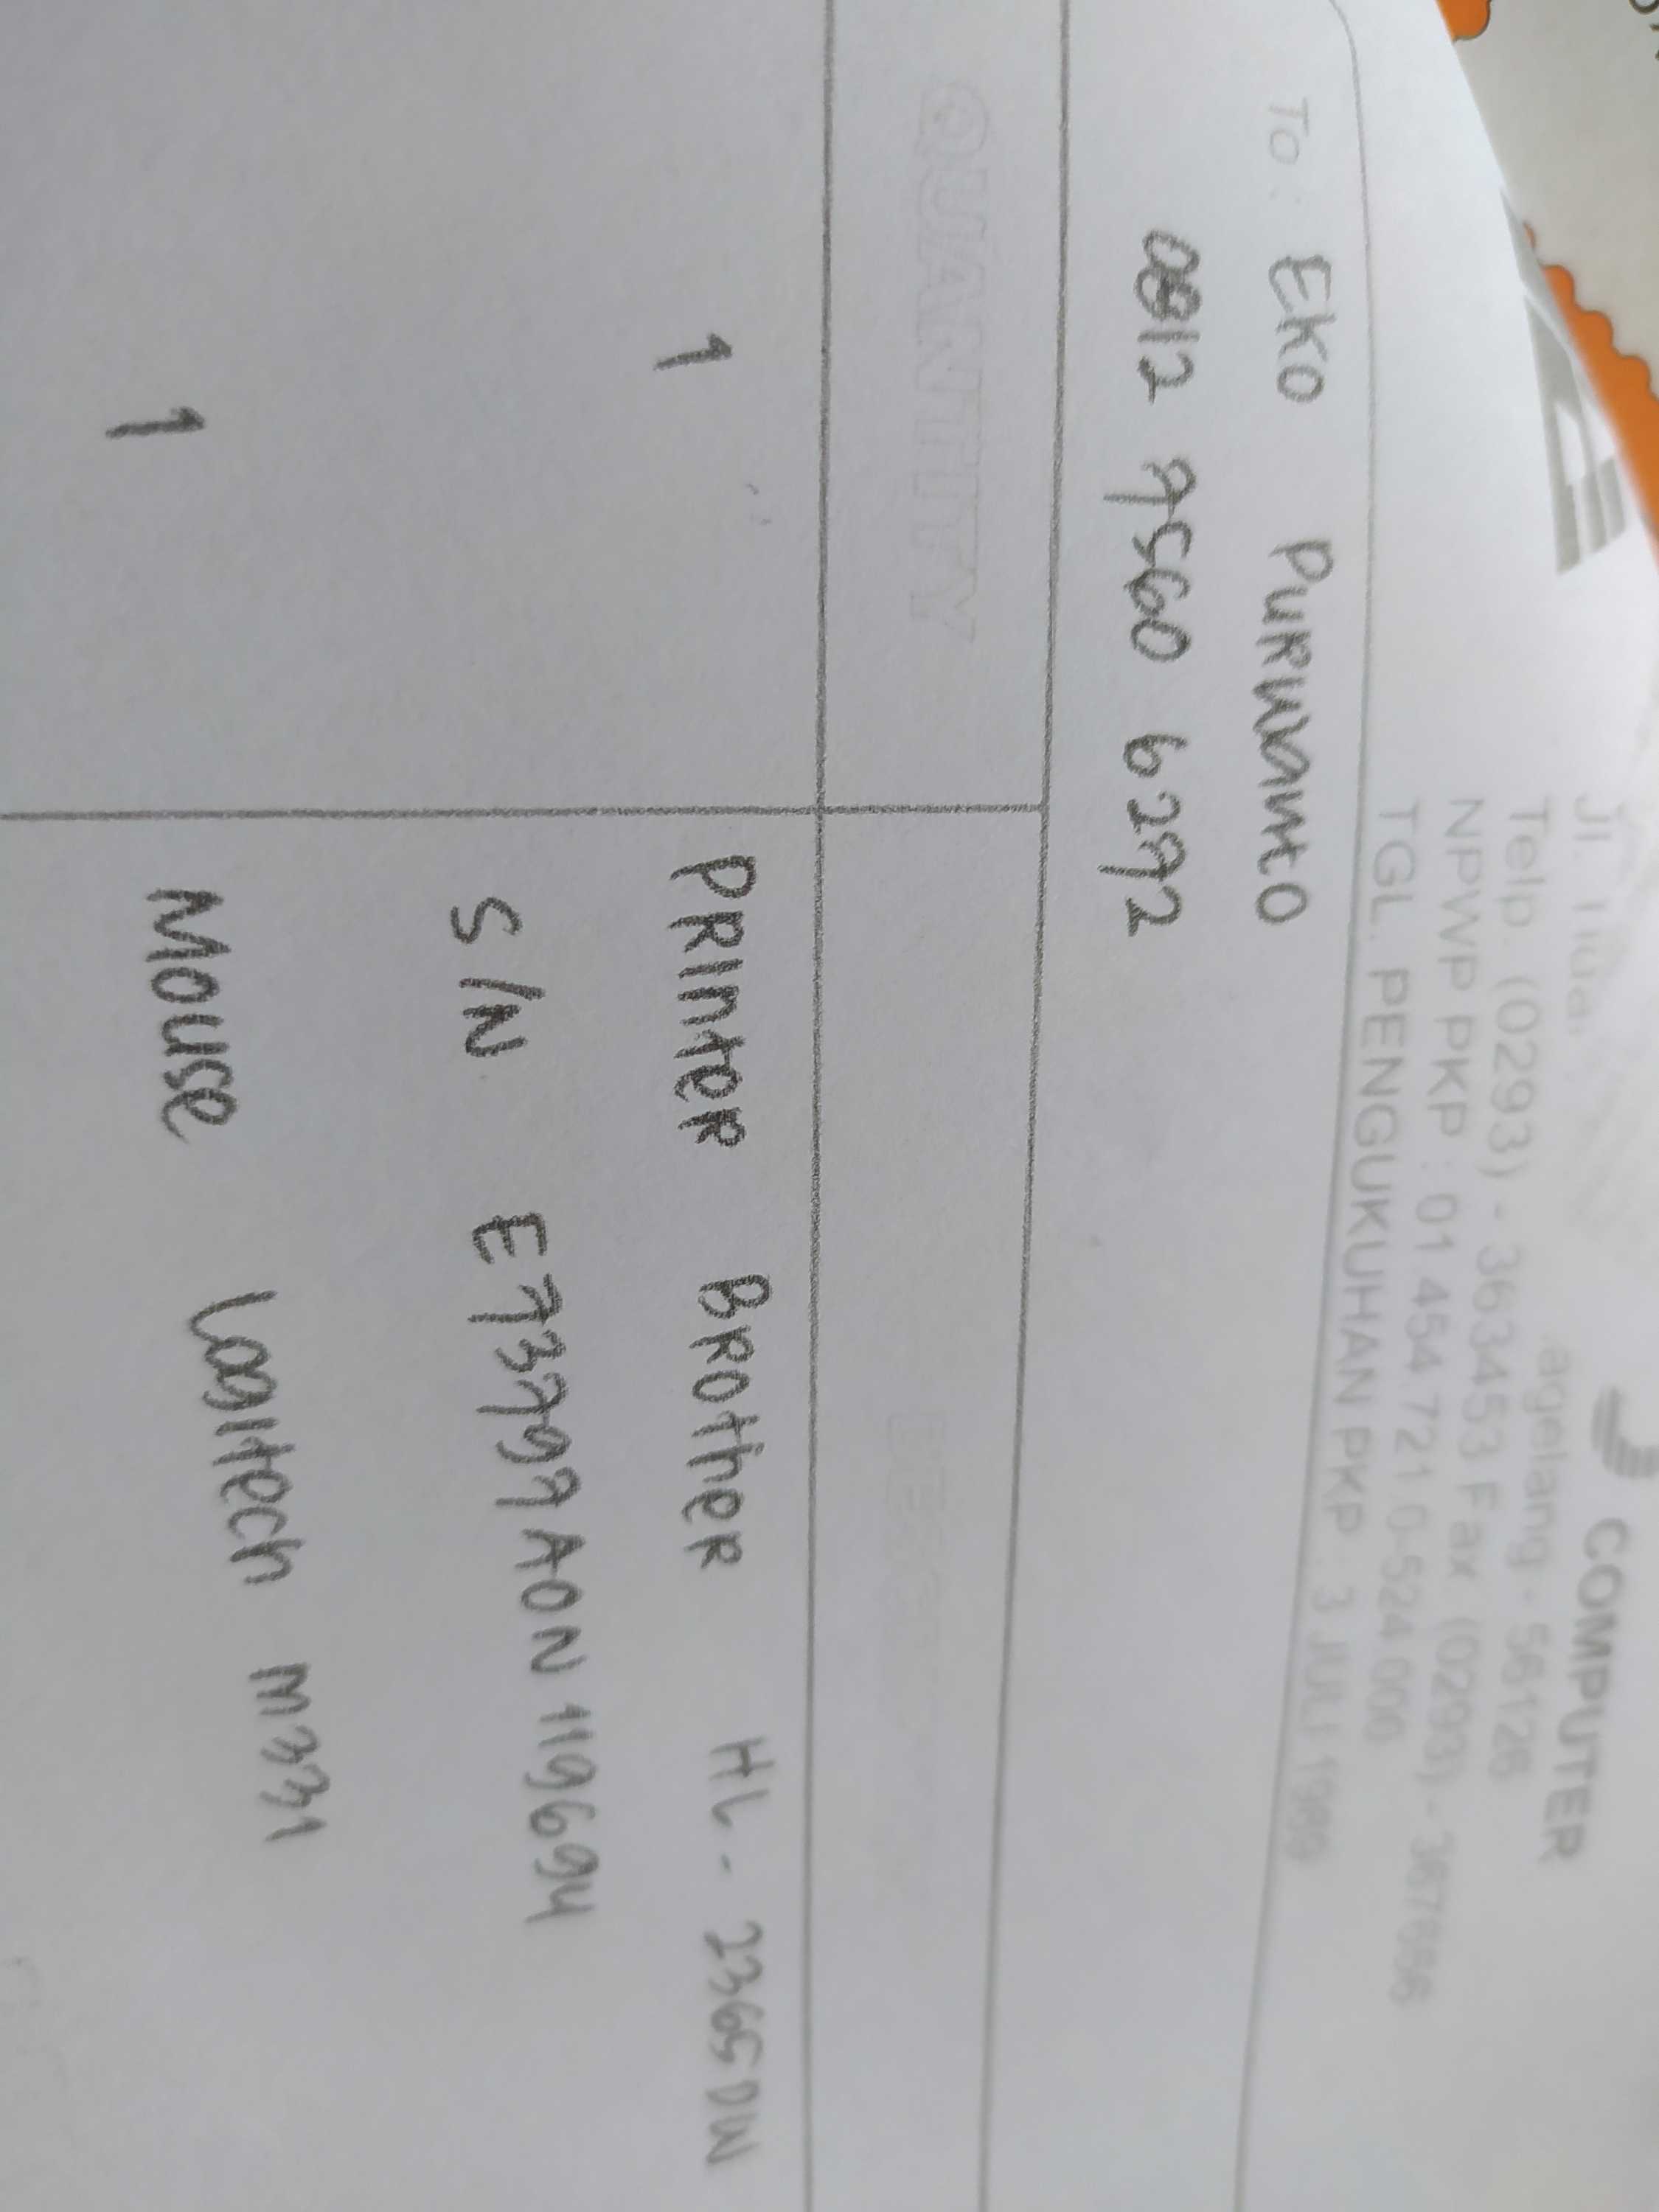 COMPUTER
Jl.
agelang - 56126
Telp. (0293) - 3633453 Fax (0293) -
NPWP PKP : 01 454 721 0-524 000
TGL. PENGUKUHAN PKP : 3 JULI
To : EKO PURWANTO
0812 9560 6292
QUANTITY
1 PRINTER BROTHER HL - 2365DW
S/N E73797A0N119694
1 MOUSE LOGITECH M331